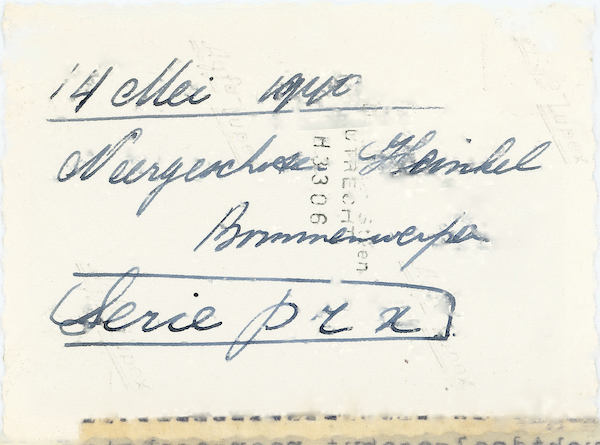 14 Mei 1940
Neergeschoten Heinkel
Bommenwerper
Serie p r x
UTRECHT
H 3306